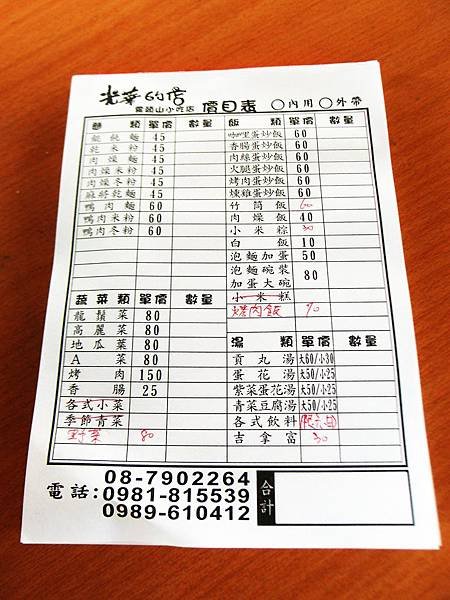 光華的店
霧頭山小吃店 價目表 ○內用 ○外帶
麵類 單價 數量
餛飩麵 45
乾米粉 45
肉燥麵 45
肉燥米粉 45
肉燥冬粉 45
麻將乾麵 45
鴨肉麵 60
鴨肉米粉 60
鴨肉冬粉 60
蔬菜類 單價 數量
龍鬚菜 80
高麗菜 80
地瓜菜 80
A菜 80
烤肉 150
香腸 25
各式小菜
季節青菜
80
飯類 單價 數量
咖哩蛋炒飯 60
香腸蛋炒飯 60
肉絲蛋炒飯 60
火腿蛋炒飯 60
烤肉蛋炒飯 60
燻雞蛋炒飯 60
竹筒飯 60
肉燥飯 40
小米粽 30
白飯 10
泡麵加蛋 50
泡麵碗裝
加蛋大碗 80
小米糕
烤肉飯 70
湯類 單價 數量
貢丸湯 大60/小30
蛋花湯 大50/小25
紫菜蛋花湯 大50/小25
青菜豆腐湯 大50/小25
各式飲料
吉拿富 30
電話:
08-7902264
0981-815539
0989-610412
合計